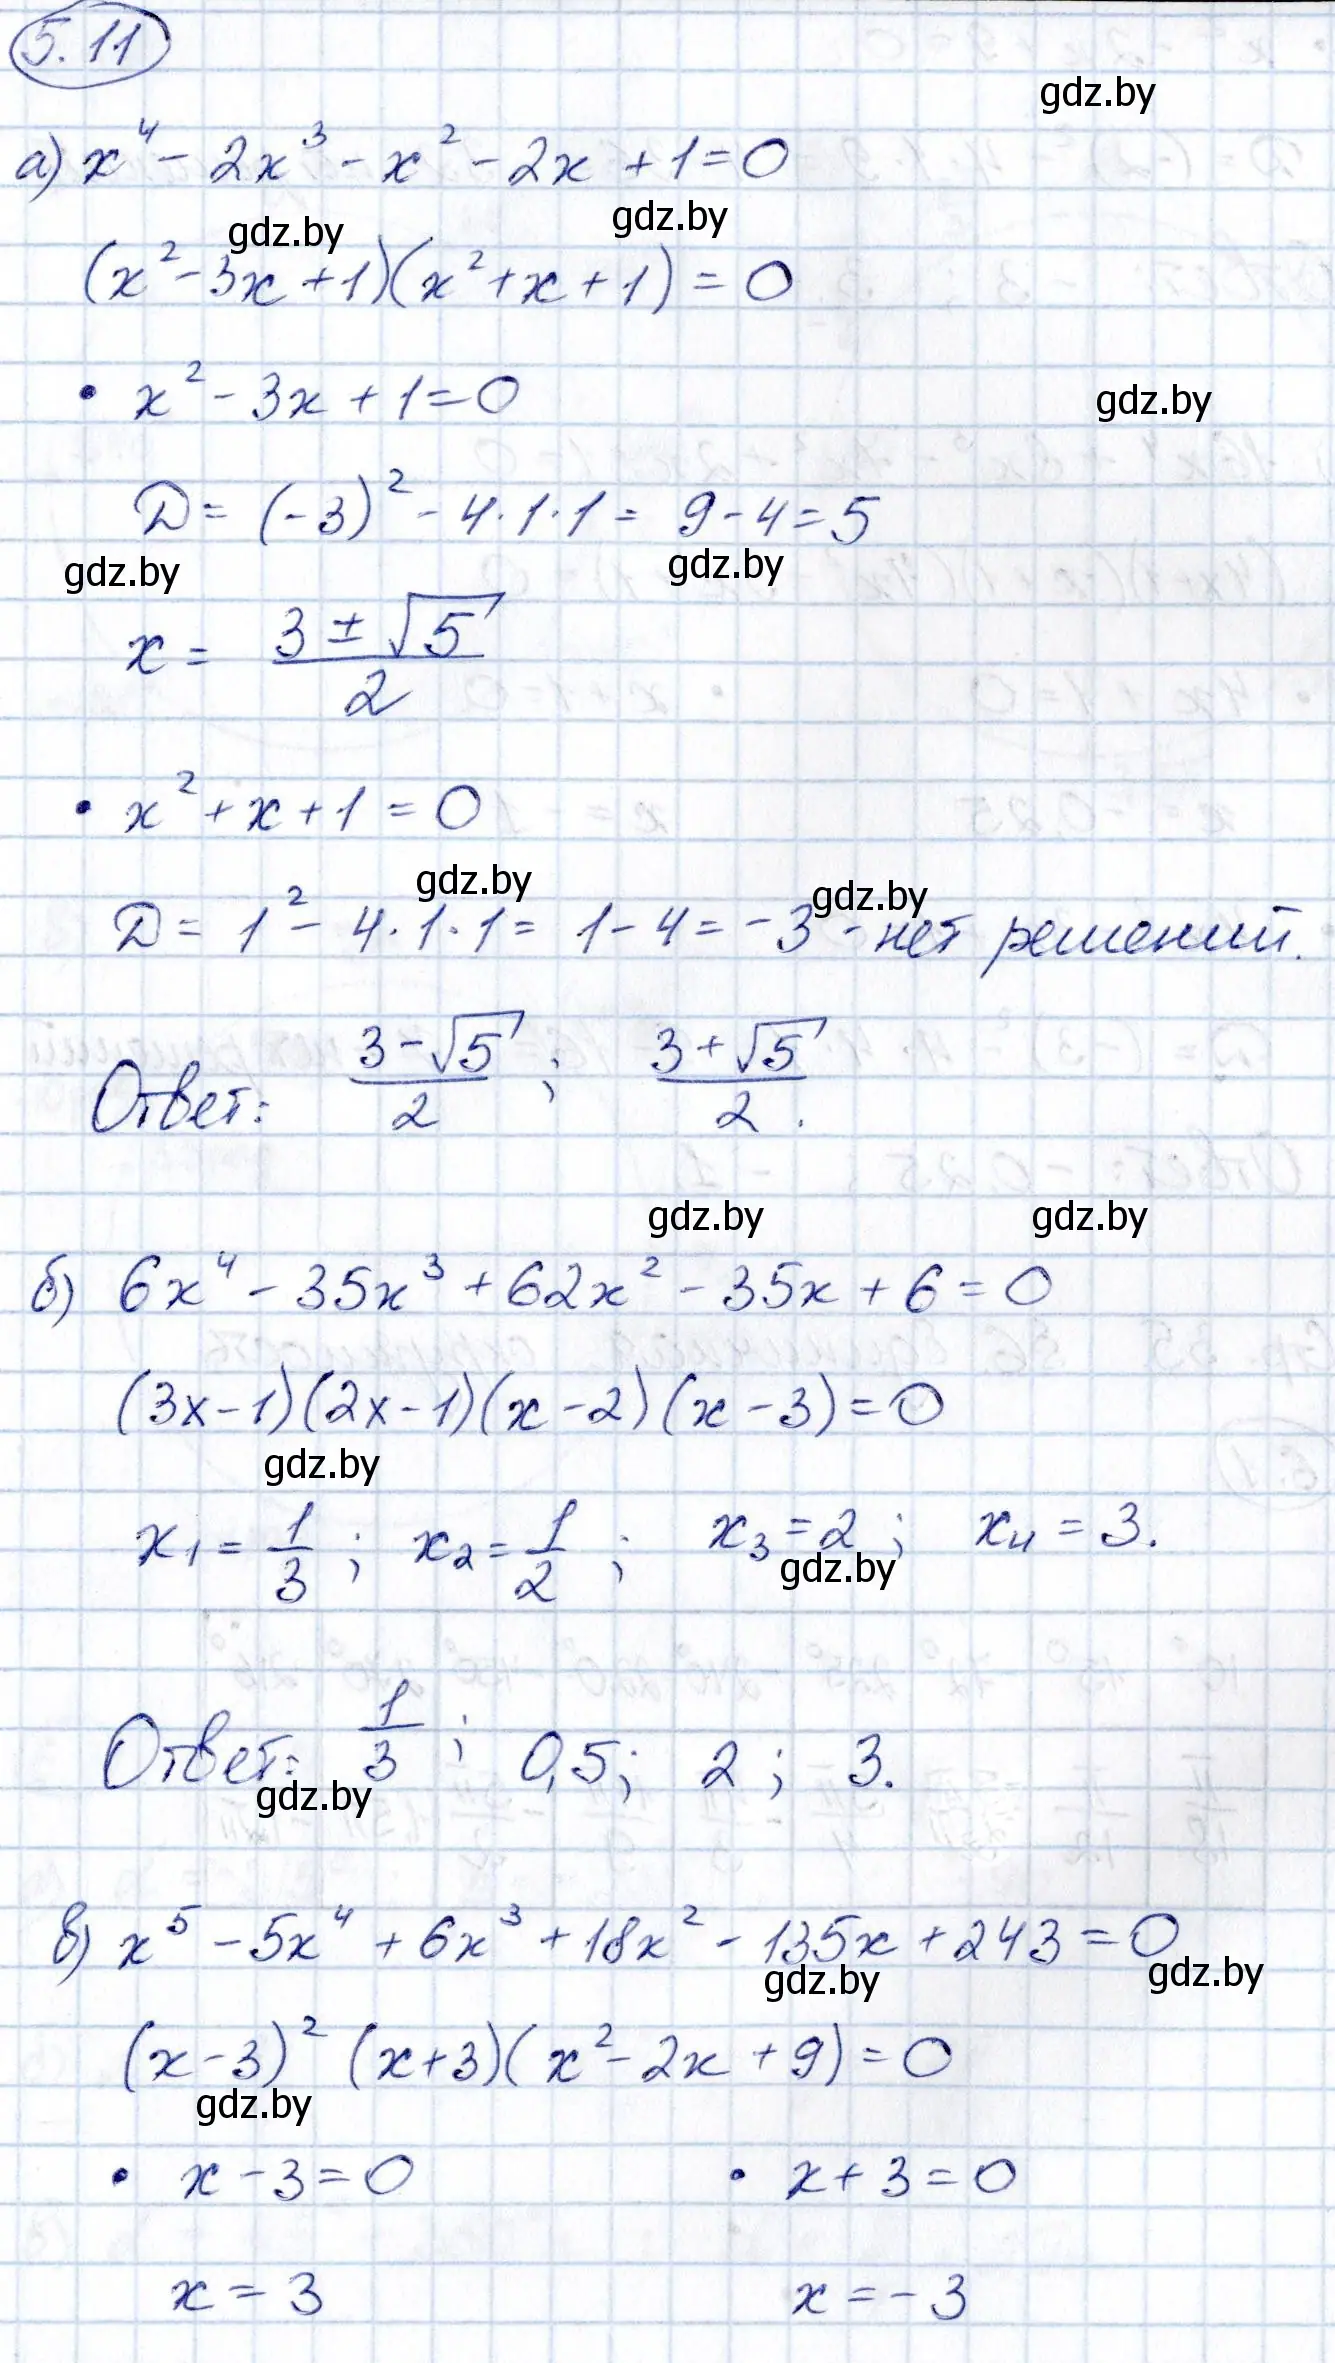 5.11
gdz.by
а) x⁴ - 2x³ - x² - 2x + 1 = 0
gdz.by gdz.by
(x² - 3x + 1)(x² + x + 1) = 0
• x² - 3x + 1 = 0
gdz.by
D = (-3)² - 4·1·1 = 9 - 4 = 5
gdz.by gdz.by
x = (3 ± √5)/2
• x² + x + 1 = 0
gdz.by gdz.by
D = 1² - 4·1·1 = 1 - 4 = -3 - нет решений.
Ответ: (3 - √5)/2 ; (3 + √5)/2 .
gdz.by gdz.by
б) 6x⁴ - 35x³ + 62x² - 35x + 6 = 0
(3x - 1)(2x - 1)(x - 2)(x - 3) = 0
gdz.by
x₁ = 1/3 ; x₂ = 1/2 ; x₃ = 2 ; x₄ = 3.
gdz.by
Ответ: 1/3 ; 0,5 ; 2 ; 3.
gdz.by
в) x⁵ - 5x⁴ + 6x³ + 18x² - 135x + 243 = 0
gdz.by gdz.by
(x - 3)² (x + 3)(x² - 2x + 9) = 0
gdz.by
• x - 3 = 0 • x + 3 = 0
x = 3 x = -3